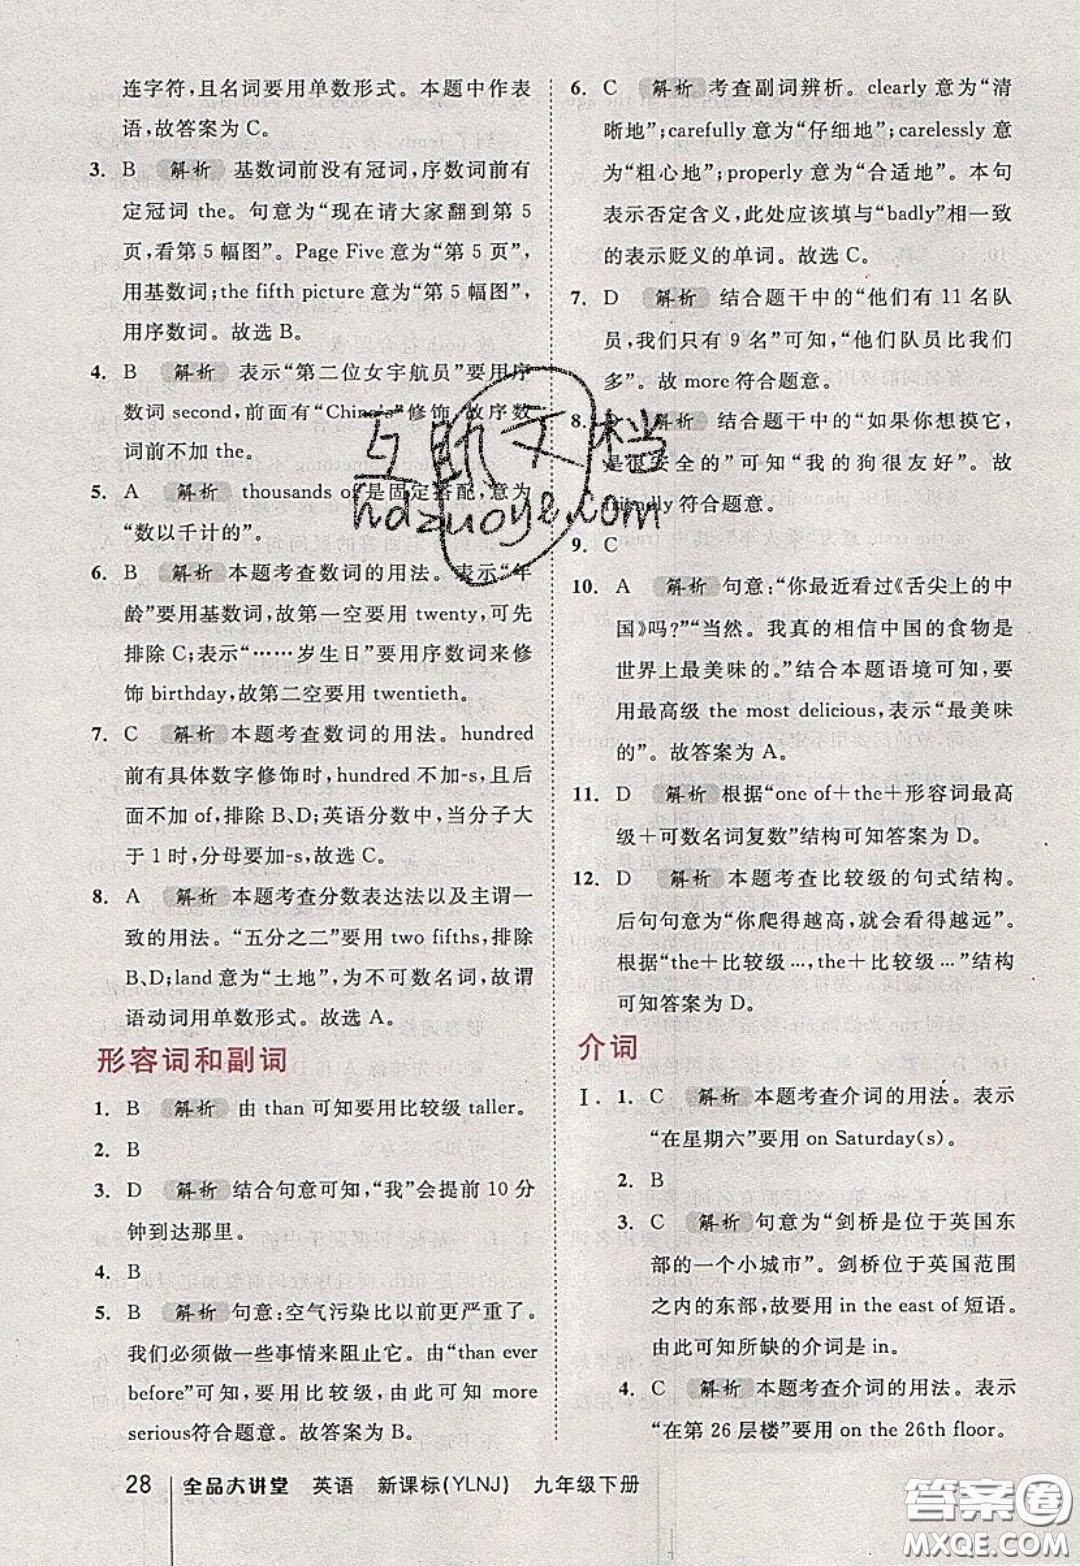 连字符,且名词要用单数形式。本题中作表
语,故答案为C。
3. B 解析 基数词前没有冠词,序数词前有
定冠词 the。句意为“现在请大家翻到第 5
页,看第 5 幅图”。Page Five 意为“第 5 页”,
用基数词;the fifth picture 意为“第 5 幅图”,
用序数词。故选 B。
4. B 解析 表示“第二位女宇航员”要用序
数词 second,前面有“China's”修饰,故序数
词前不加 the。
5. A 解析 thousands of 是固定搭配,意为
“数以千计的”。
6. B 解析 本题考查数词的用法。表示“年
龄”要用基数词,故第一空要用 twenty,可先
排除 C;表示“……岁生日”要用序数词来修
饰 birthday,故第二空要用 twentieth。
7. C 解析 本题考查数词的用法。hundred
前有具体数字修饰时,hundred 不加-s,且后
面不加 of,排除 B、D;英语分数中,当分子大
于 1 时,分母要加-s,故选 C。
8. A 解析 本题考查分数表达法以及主谓一
致的用法。“五分之二”要用 two fifths,排除
B、D;land 意为“土地”,为不可数名词,故谓
语动词用单数形式。故选 A。
形容词和副词
1. B 解析 由 than 可知要用比较级 taller。
2. B
3. D 解析 结合句意可知,“我”会提前 10 分
钟到达那里。
4. B
5. B 解析 句意:空气污染比以前更严重了。
我们必须做一些事情来阻止它。由“than ever
before”可知,要用比较级,由此可知 more
serious符合题意。故答案为 B。
6. C 解析 考查副词辨析。clearly 意为“清
晰地”;carefully 意为“仔细地”;carelessly
意为“粗心地”;properly 意为“合适地”。本句
表示否定含义,此处应该填与“badly”相一致
的表示贬义的单词。故选 C。
7. D 解析 结合题干中的“他们有 11 名队
员,我们只有 9 名”可知,“他们队员比我们
多”。故 more 符合题意。
8. 解析 结合题干中的“如果你想摸它,
是很安全的”可知“我的狗很友好”。故
符合题意。
9. C
10. A 解析 句意:“你最近看过《舌尖上的中
国》吗?”“当然。我真的相信中国的食物是
世界上最美味的。”结合本题语境可知,要
用最高级 the most delicious,表示“最美味
的”。故答案为 A。
11. D 解析 根据“one of+the+形容词最高
级+可数名词复数”结构可知答案为 D。
12. D 解析 本题考查比较级的句式结构。
后句句意为“你爬得越高,就会看得越远”。
根据“the+比较级…,the+比较级…”结构
可知答案为 D。
介词
Ⅰ. 1. C 解析 本题考查介词的用法。表示
“在星期六”要用 on Saturday(s)。
2. B
3. C 解析 句意为“剑桥是位于英国东
部的一个小城市”。剑桥位于英国范围
之内的东部,故要用 in the east of 短语。
由此可知所缺的介词是 in。
4. C 解析 本题考查介词的用法。表示
“在第 26 层楼”要用 on the 26th floor。
28 全品大讲堂 英语 新课标(YLNJ) 九年级下册
互助文档
hdzuoye.com
答案圈
MXQE.COM